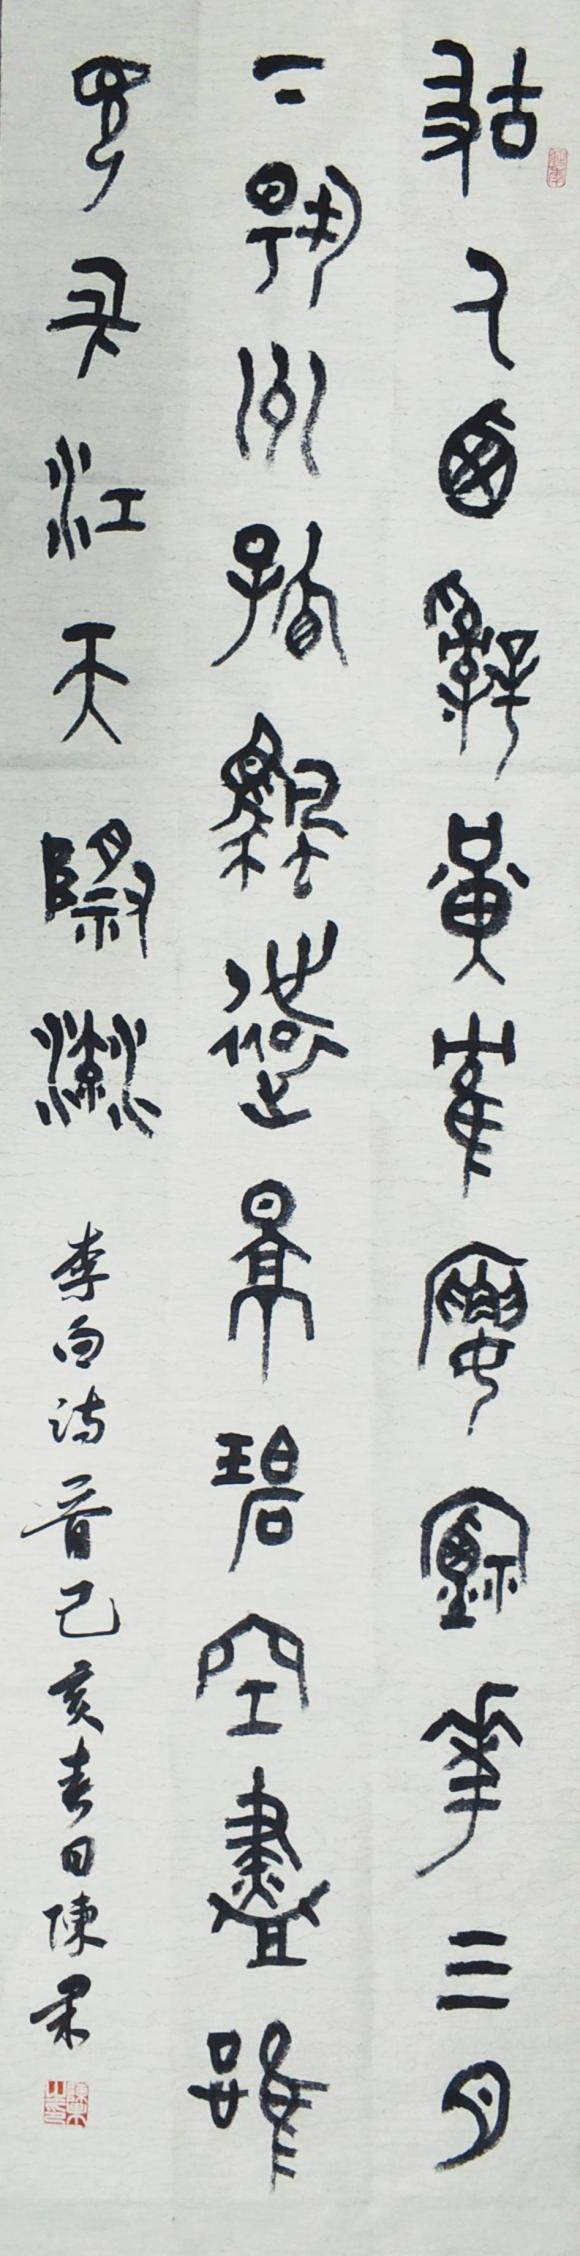 故人西辭黃鶴樓煙華三月
下揚州孤帆遠景碧空盡唯
見長江天際流 李白詩一首己亥春日陳果